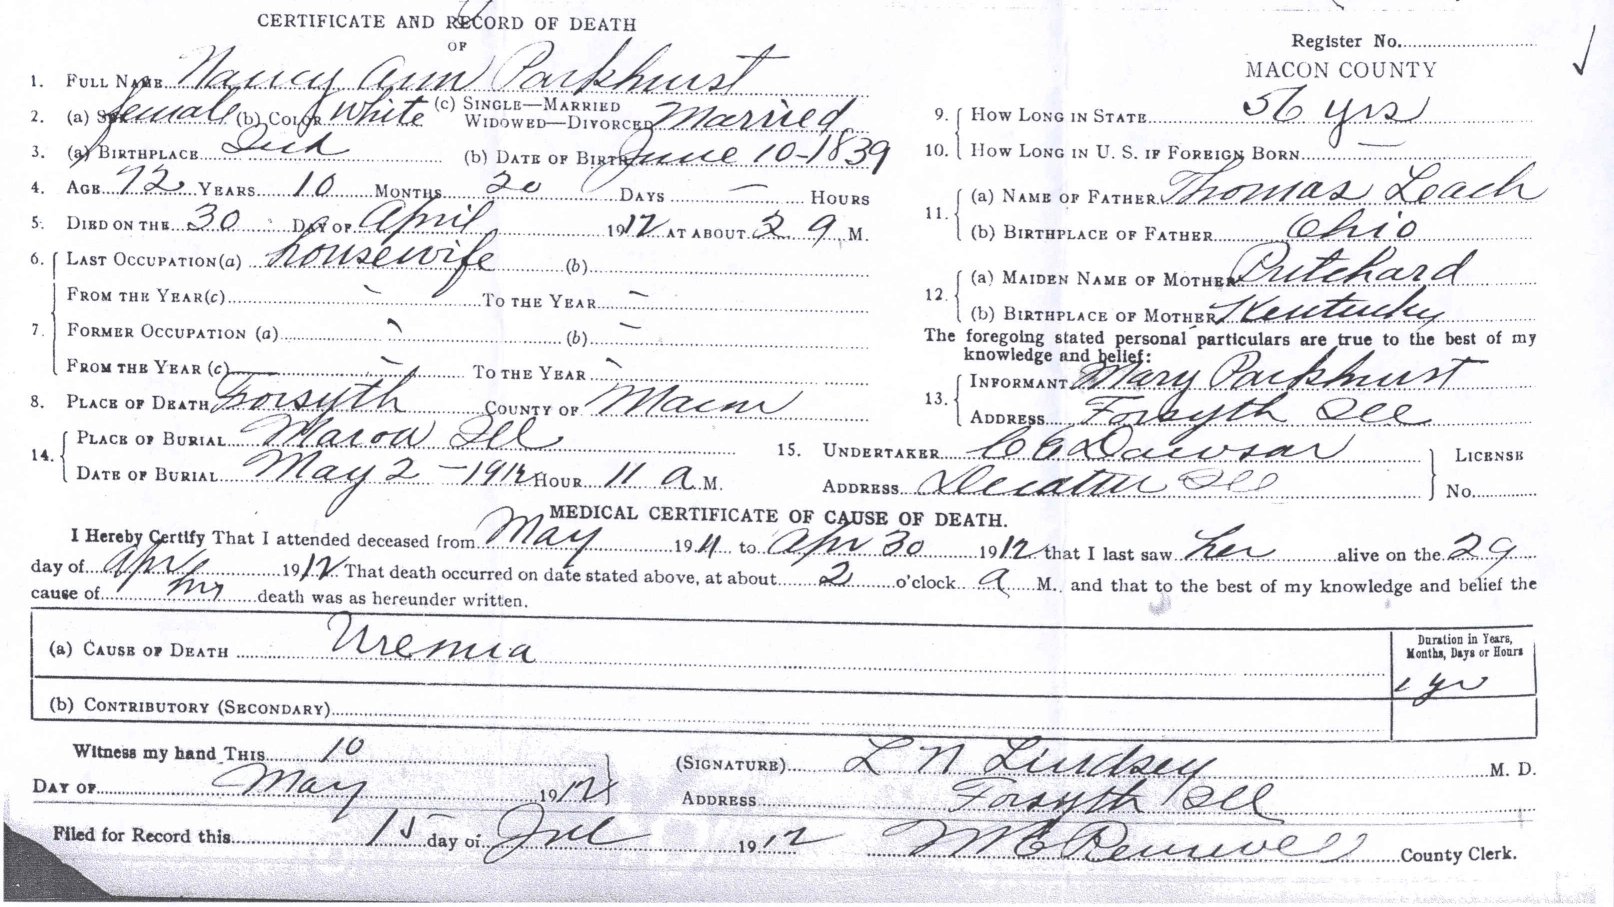 CERTIFICATE AND RECORD OF DEATH
OF
Register No.
MACON COUNTY
1. FULL NAME Nancy Ann Parkhurst
2. (a) SEX female (b) COLOR White (c) SINGLE—MARRIED WIDOWED—DIVORCED Married
3. (a) BIRTHPLACE Ind (b) DATE OF BIRTH June 10-1839
4. AGE 72 YEARS 10 MONTHS 20 DAYS — HOURS
5. DIED ON THE 30 DAY OF April 1912 AT ABOUT 2 a M.
6. LAST OCCUPATION (a) housewife (b)
FROM THE YEAR (c) - TO THE YEAR -
7. FORMER OCCUPATION (a) - (b) -
FROM THE YEAR (c) - TO THE YEAR -
8. PLACE OF DEATH Forsyth COUNTY OF Macon
9. HOW LONG IN STATE 56 yrs
10. HOW LONG IN U. S. IF FOREIGN BORN —
11. (a) NAME OF FATHER Thomas Leach
(b) BIRTHPLACE OF FATHER Ohio
12. (a) MAIDEN NAME OF MOTHER Pritchard
(b) BIRTHPLACE OF MOTHER Kentucky
The foregoing stated personal particulars are true to the best of my
knowledge and belief:
13. INFORMANT Mary Parkhurst
ADDRESS Forsyth Ill
14. PLACE OF BURIAL Maroa Ill
DATE OF BURIAL May 2 - 1912 HOUR 11 a M.
15. UNDERTAKER C E Dawson LICENSE
ADDRESS Decatur Ill No.
MEDICAL CERTIFICATE OF CAUSE OF DEATH.
I Hereby Certify That I attended deceased from May 1911 to Apr 30 1912 that I last saw her alive on the 29
day of Apr 1912 That death occurred on date stated above, at about 2 o'clock a M., and that to the best of my knowledge and belief the
cause of death was as hereunder written.
(a) CAUSE OF DEATH Uremia
Duration in Years, Months, Days or Hours
1 yr
(b) CONTRIBUTORY (SECONDARY)
Witness my hand THIS 10
DAY OF May 1912
(SIGNATURE) L N Lindsey M. D.
ADDRESS Forsyth Ill
Filed for Record this 15 day of Jul 1912 County Clerk.